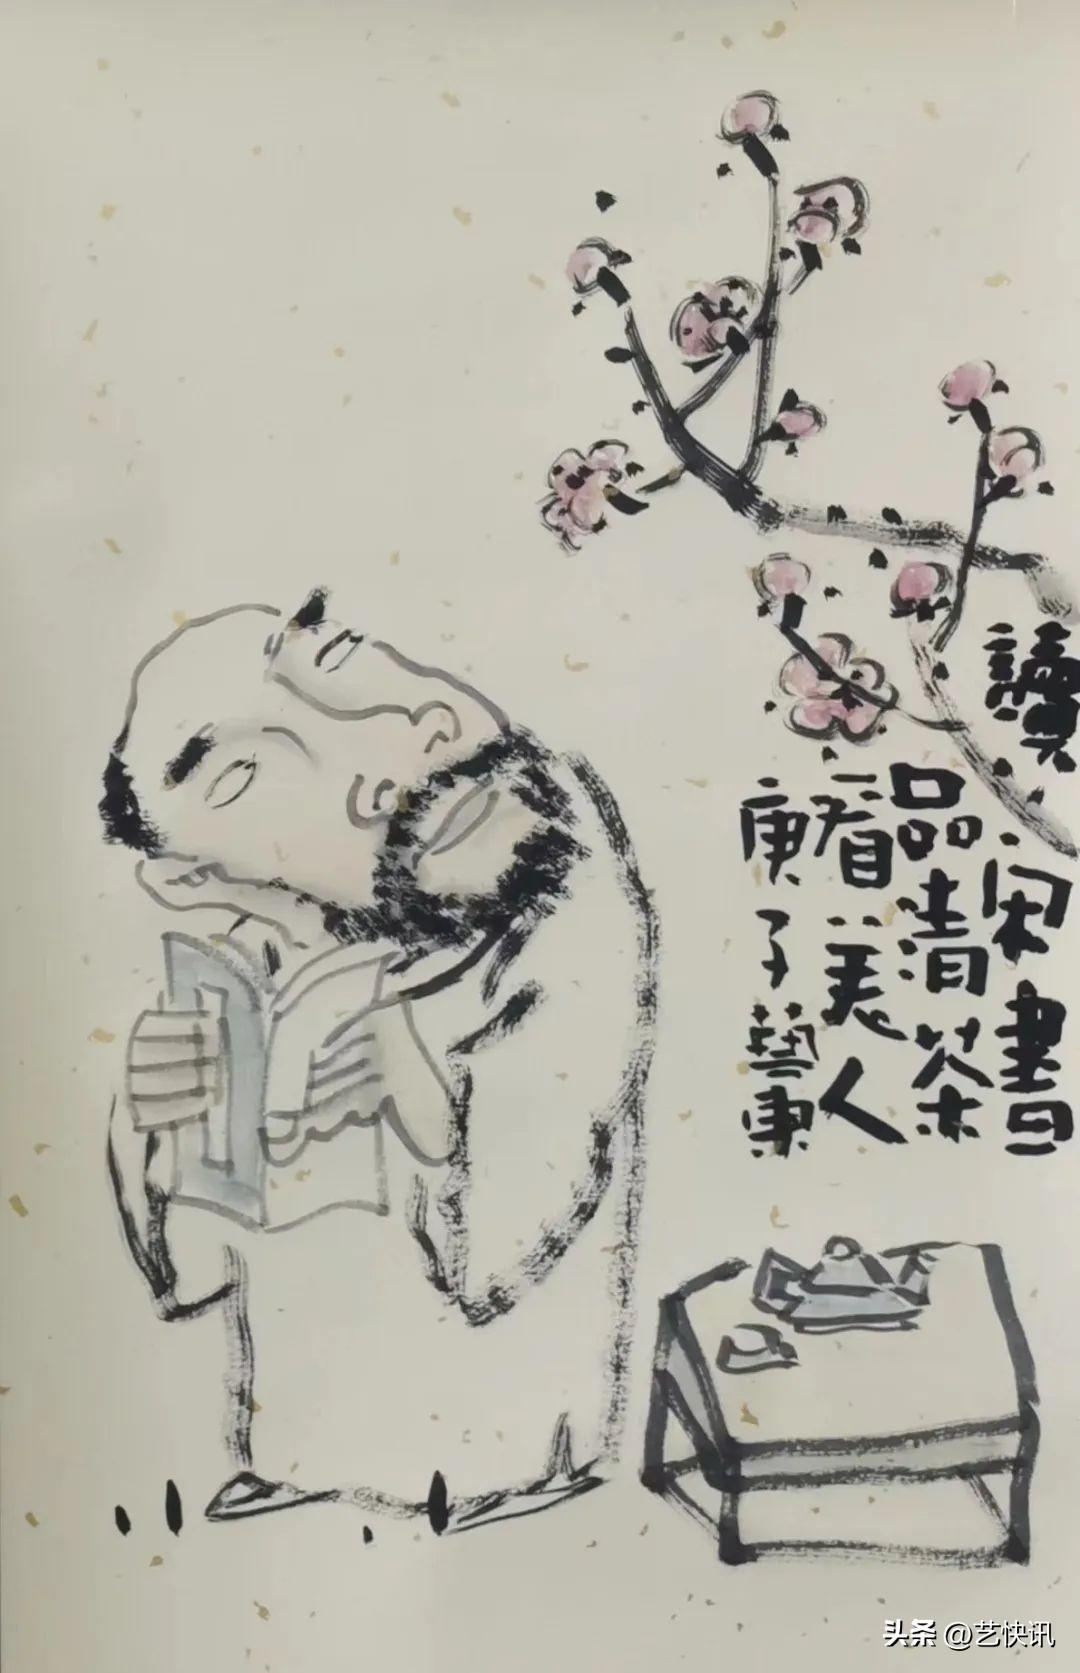 讀闲書
品清茶
看美人
庚子藝東
头条 @艺快讯